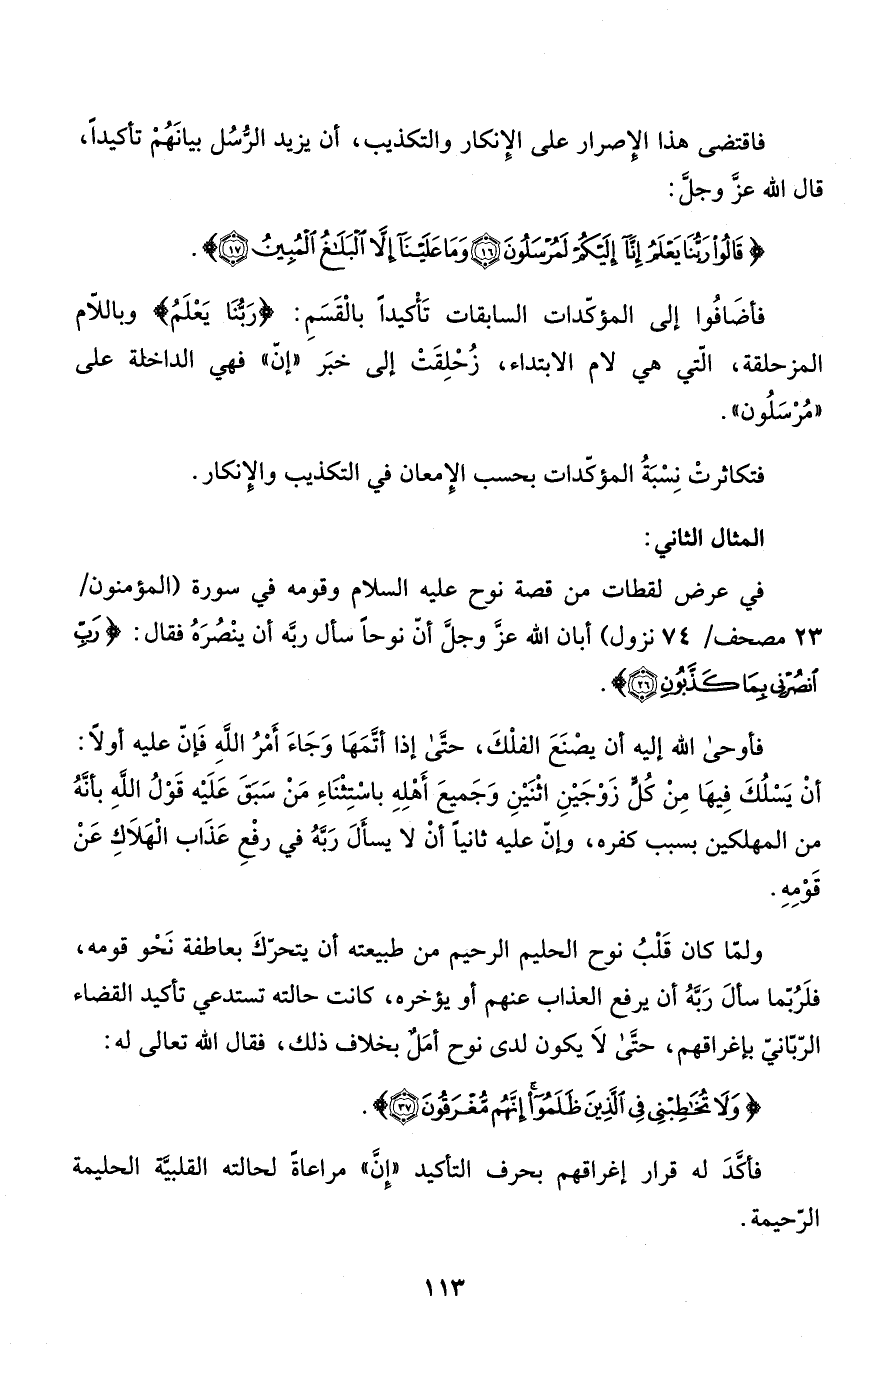 فاقتضى هذا الإصرار على الإنكار والتكذيب، أن يزيد الرُّسُل بيانَهُمْ تأكيداً،
قال الله عزَّ وجلَّ:
﴿قَالُوا۟ رَبُّنَا يَعْلَمُ إِنَّآ إِلَيْكُمْ لَمُرْسَلُونَ ١٦ وَمَا عَلَيْنَآ إِلَّا ٱلْبَلَـٰغُ ٱلْمُبِينُ ١٧﴾.
فأضَافُوا إلى المؤكّدات السابقات تَأْكيداً بالْقَسَمِ: ﴿رَبُّنَا يَعْلَمُ﴾ وباللاّم
المزحلقة، الّتي هي لام الابتداء، زُحْلِقَتْ إلى خبَر «إنّ» فهي الداخلة على
«مُرْسَلُون».
فتكاثرتْ نِسْبَةُ المؤكّدات بحسب الإمعان في التكذيب والإنكار.
المثال الثاني:
في عرض لقطات من قصة نوح عليه السلام وقومه في سورة (المؤمنون/
٢٣ مصحف/ ٧٤ نزول) أبان الله عزَّ وجلَّ أنّ نوحاً سأل ربَّه أن ينْصُرَهُ فقال: ﴿رَبِّ
ٱنصُرْنِى بِمَا كَذَّبُونِ ٢٦﴾.
فأوحىٰ الله إليه أن يصْنَعَ الفلْكَ، حتَّىٰ إذا أتَّمَهَا وَجَاءَ أَمْرُ اللَّهِ فَإنّ عليه أولاً:
أنْ يَسْلُكَ فِيهَا مِنْ كُلٍّ زَوْجَيْنِ اثْنَيْنِ وَجَميعَ أَهْلِهِ باسْتِثْنَاءِ مَنْ سَبَقَ عَلَيْه قَوْلُ اللَّهِ بأنَّهُ
من المهلكين بسبب كفره، وإنّ عليه ثانياً أنْ لا يسأَلَ رَبَّهُ في رفْعِ عَذَاب الْهَلَاكِ عَنْ
قَوْمِهِ.
ولمّا كان قَلْبُ نوح الحليم الرحيم من طبيعته أن يتحرّكَ بعاطفة نَحْو قومه،
فلَرُبّما سألَ رَبَّهُ أن يرفع العذاب عنهم أو يؤخره، كانت حالته تستدعي تأكيد القضاء
الرّبّانيّ بإغراقهم، حتَّىٰ لَا يكون لدى نوح أمَلٌ بخلاف ذلك، فقال الله تعالى له:
﴿وَلَا تُخَـٰطِبْنِى فِى ٱلَّذِينَ ظَلَمُوٓا۟ ۚ إِنَّهُم مُّغْرَقُونَ ٣٧﴾.
فأكَّدَ له قرار إغراقهم بحرف التأكيد «إنَّ» مراعاةً لحالته القلبيَّة الحليمة
الرّحيمة.
١١٣